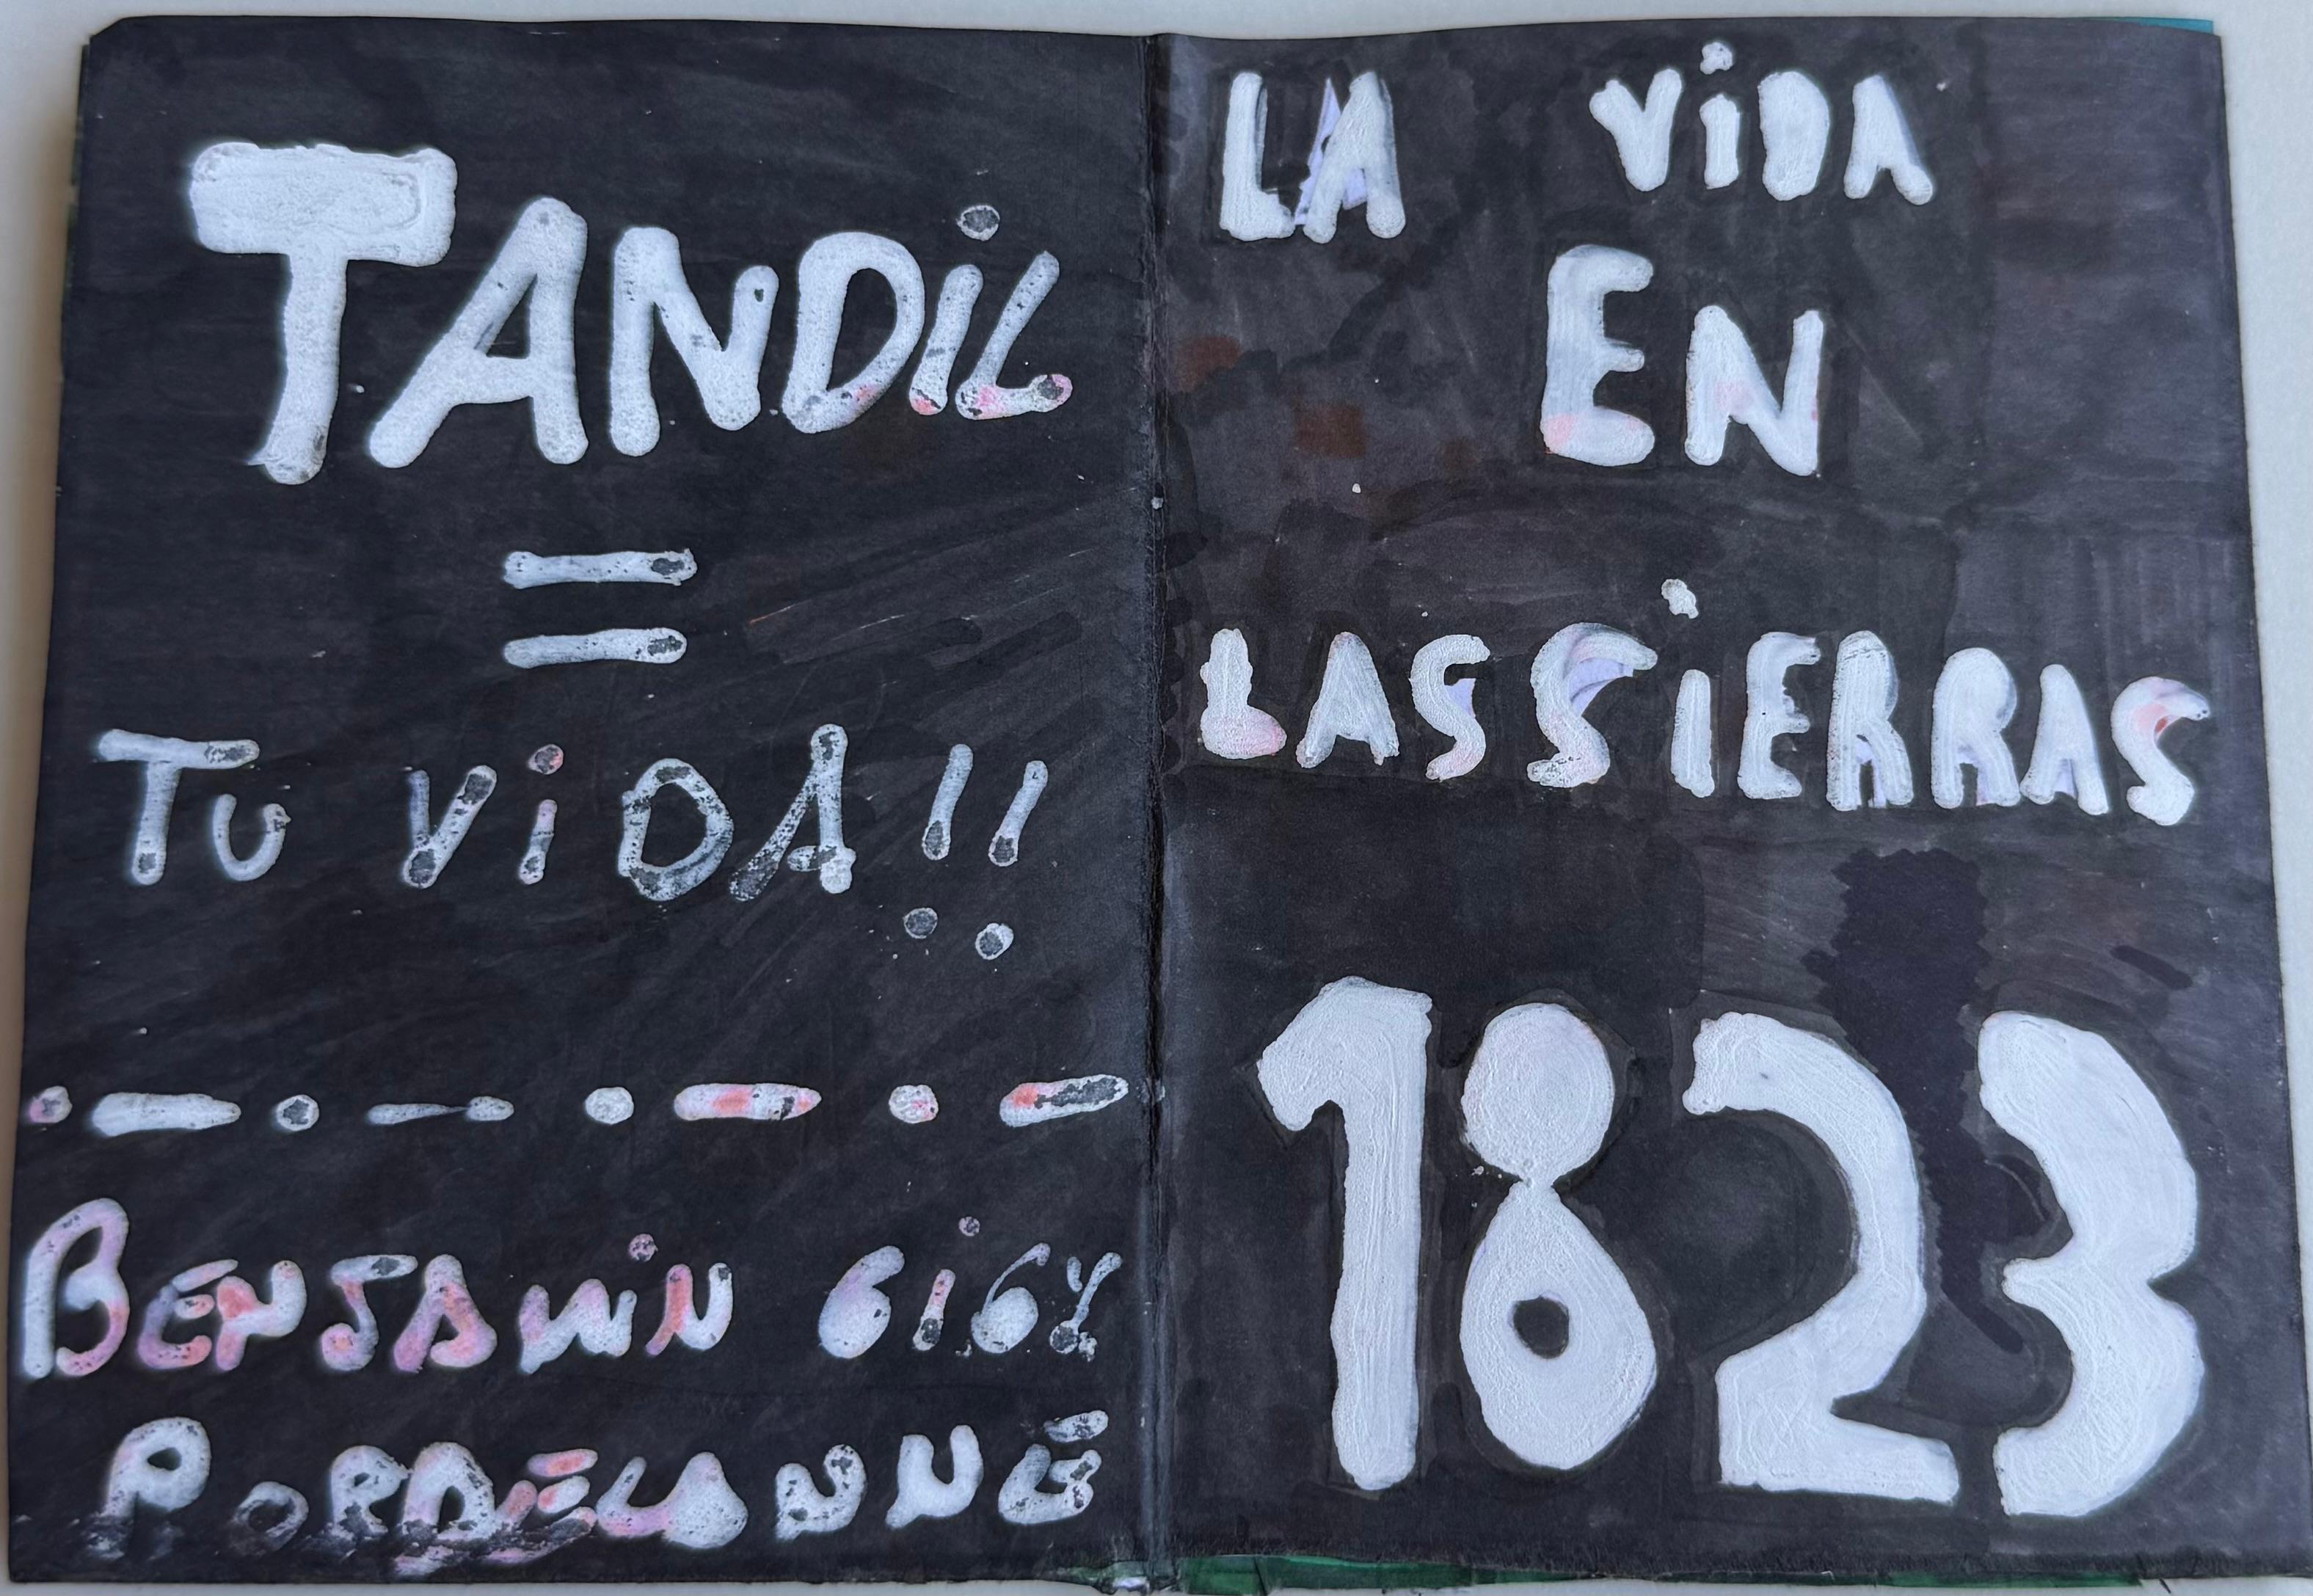 TANDiL
=
TU ViDA!!
BENJAMiN GiGY
PORDELANNE
LA ViDA
EN
LAS SiERRAS
1823